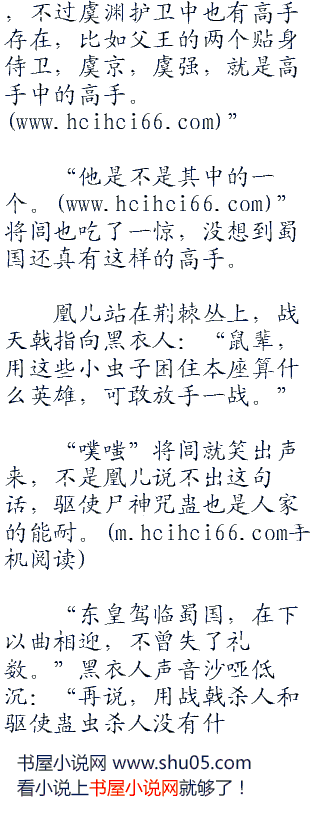 ，不过虞渊护卫中也有高手
存在，比如父王的两个贴身
侍卫，虞京，虞强，就是高
手中的高手。
(www.hcihci66.com)”
“他是不是其中的一
个。(www.hcihci66.com)”
将闾也吃了一惊，没想到蜀
国还真有这样的高手。
凰儿站在荆棘丛上，战
天戟指向黑衣人：“鼠辈，
用这些小虫子困住本座算什
么英雄，可敢放手一战。”
“噗嗤”将闾就笑出声
来，不是凰儿说不出这句
话，驱使尸神咒蛊也是人家
的能耐。(m.hcihci66.com手
机阅读)
“东皇驾临蜀国，在下
以曲相迎，不曾失了礼
数。”黑衣人声音沙哑低
沉：“再说，用战戟杀人和
驱使蛊虫杀人没有什
书屋小说网 www.shu05.com
看小说上书屋小说网就够了！